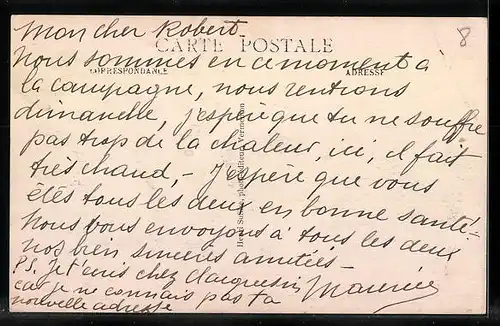 Mon cher Robert.
CARTE POSTALE
Nous sommes en ce moment à
CORRESPONDANCE
ADRESSE
la campagne, nous rentrons
dimanche, j'espère que tu ne souffre
pas trop de la chaleur, ici, il fait
très chaud, - J'espère que vous
êtes tous les deux en bonne santé.
Nous vous envoyons à tous les deux
nos bien sincères amitiés -
P.S. Je t'écris chez
Maurice
car je ne connais pas ta
nouvelle adresse
8